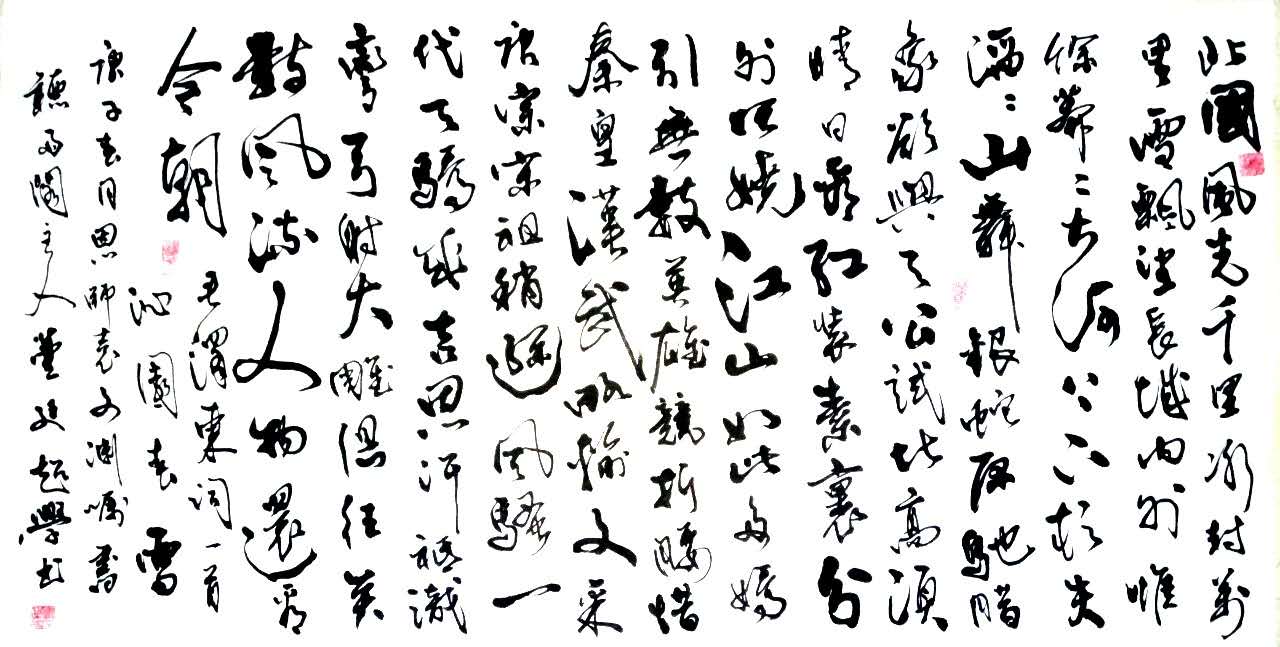 北國風光千里冰封萬
里雪飄望長城内外惟
餘莽〻大河上下頓失
滔〻山舞銀蛇原馳腊
象欲與天公試比高須
晴日看紅裝素裹分
外妖嬈江山如此多嬌
引無數英雄競折腰惜
秦皇漢武略輸文采
唐宗宋祖稍遜风騷一
代天驕成吉思汗祗識
彎弓射大雕俱往矣
數风流人物還看
今朝
毛澤東詞一首
沁園春雪
庚子春月思師袁文渊囑書
聽雨閣主人董延超學书